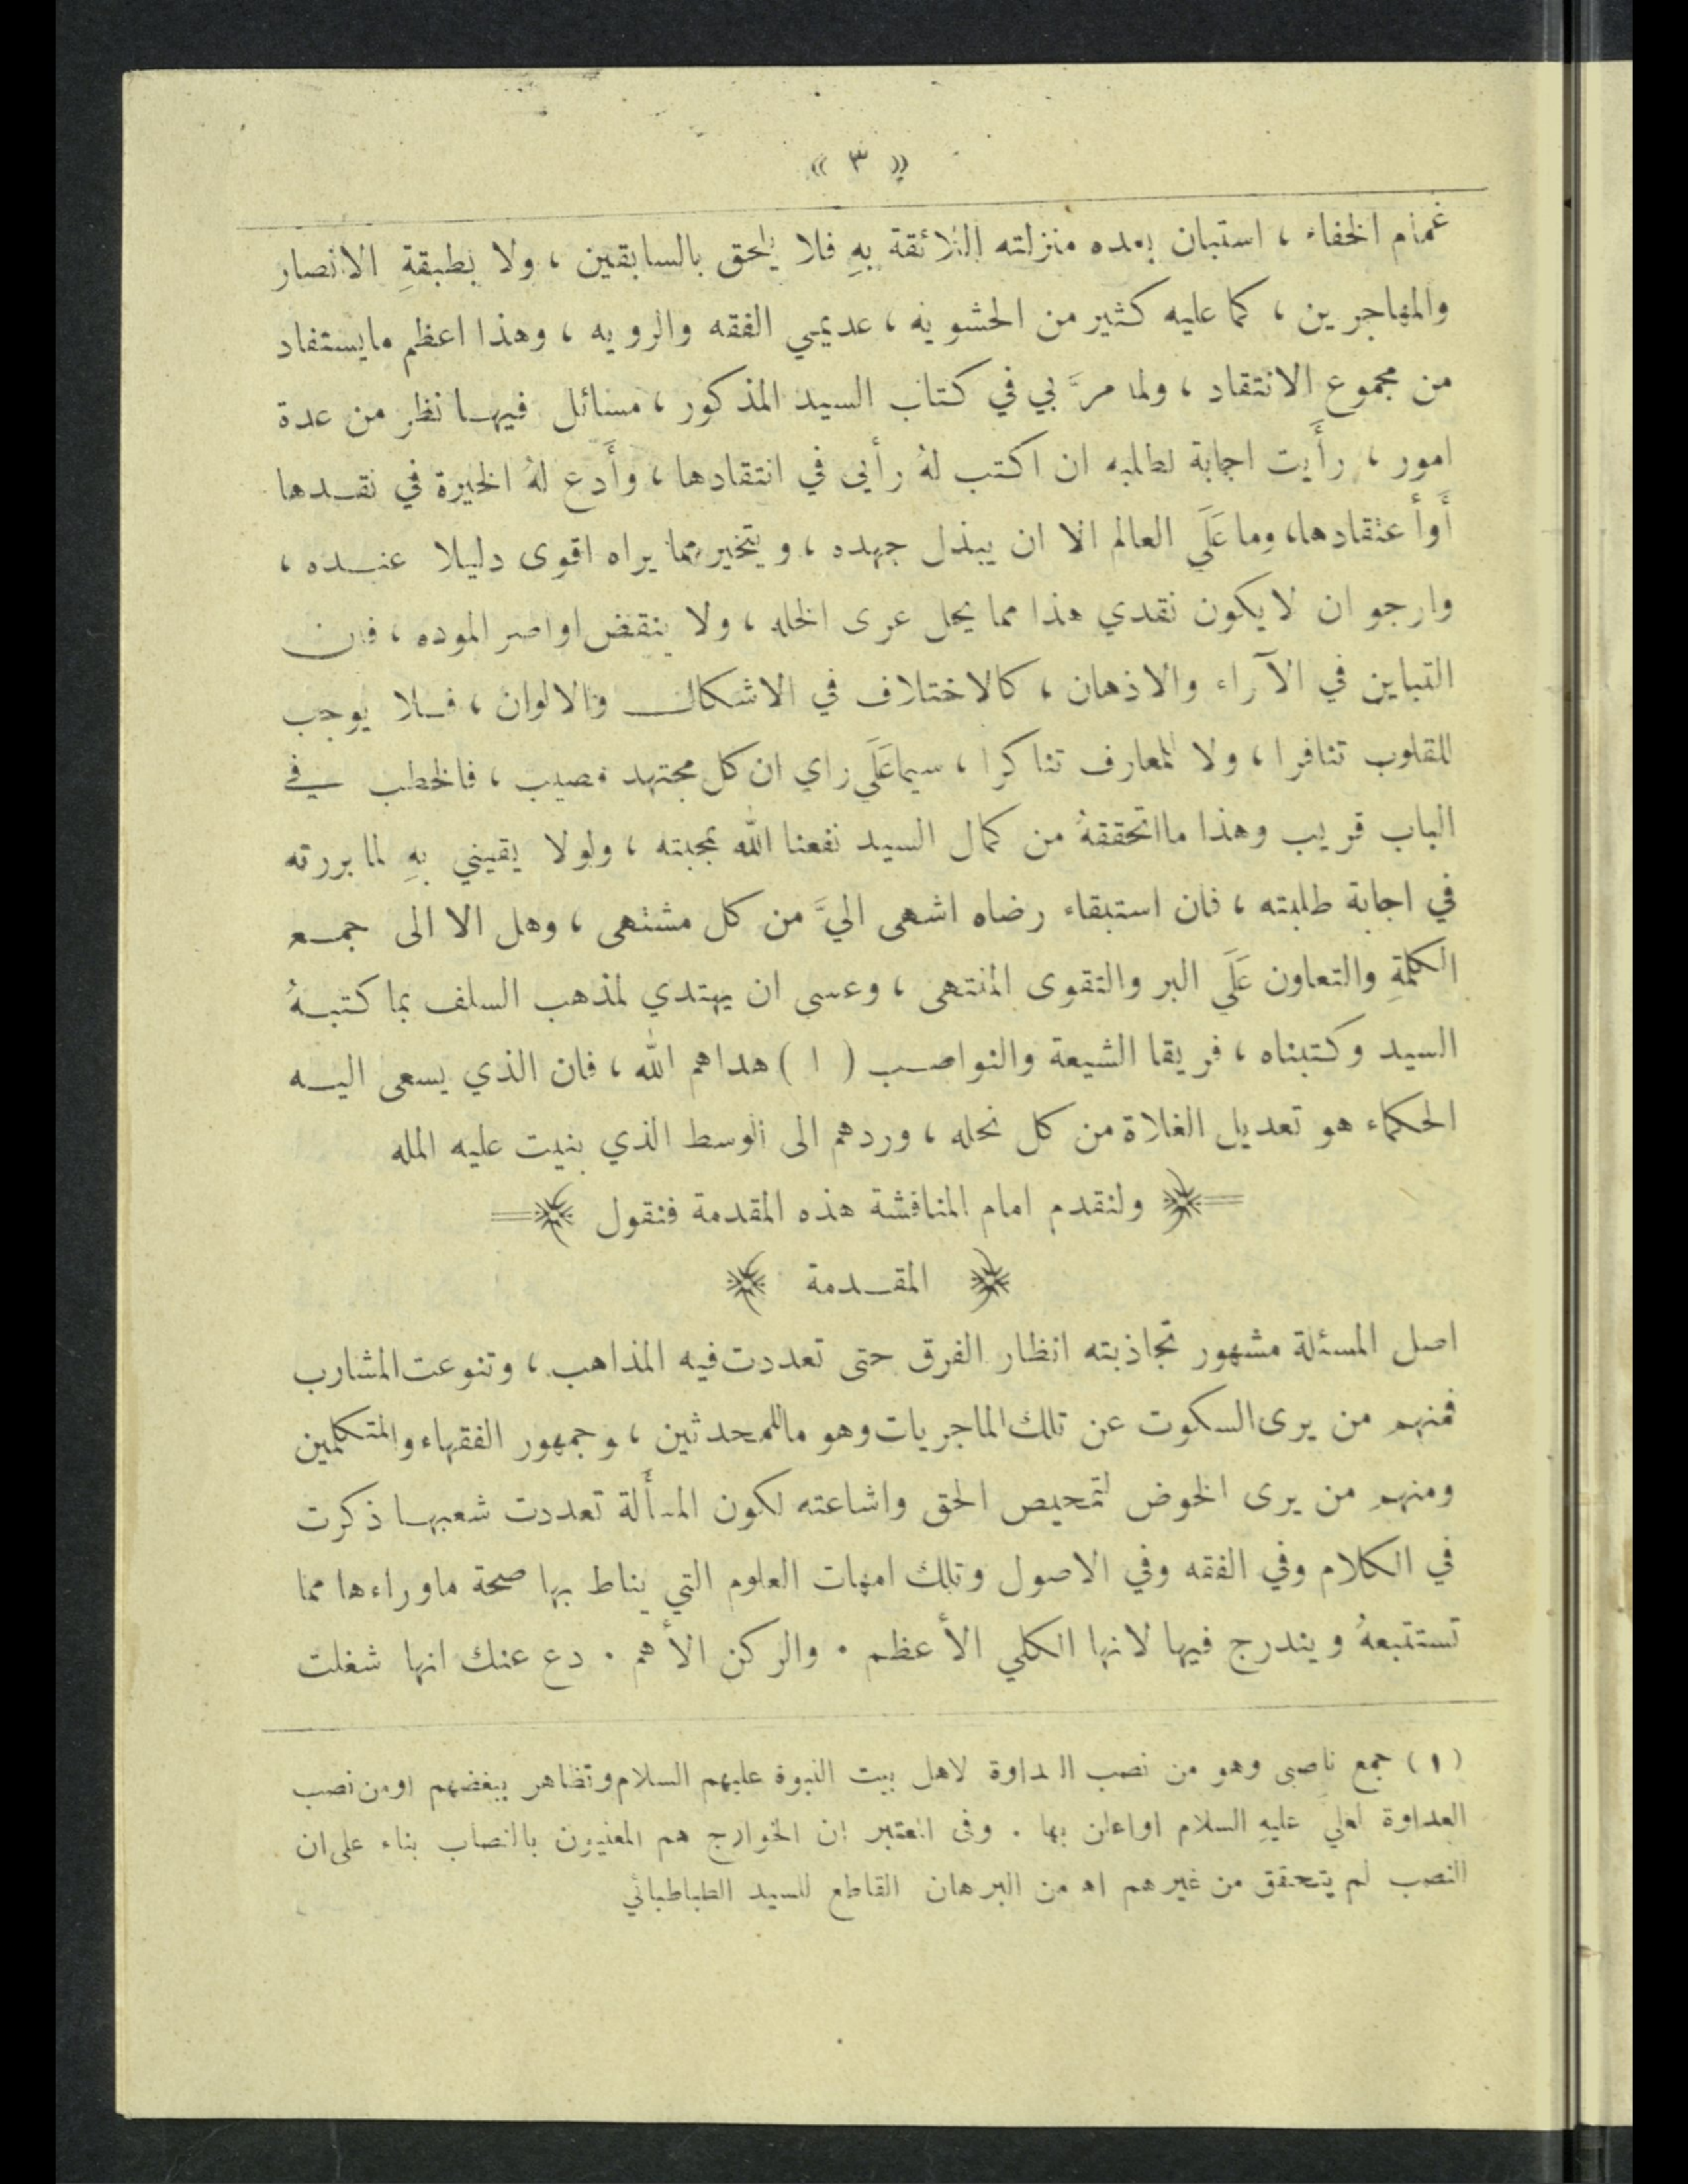 « ٣ »
غمام الخفاء ، استبان بعده منزلته اللائقة بهِ فلا يلحق بالسابقين ، ولا بطبقةِ الانصار
والمهاجرين ، كما عليه كثير من الحشويه ، عديمي الفقه والرويه ، وهذا اعظم مايستفاد
من مجموع الانتقاد ، ولما مرَّ بي في كتاب السيد المذكور ، مسائل فيهـا نظر من عدة
امور ، رأَيت اجابة لطلبه ان اكتب لهُ رأيي في انتقادها ، وأَدع لهُ الخيرة في نقـدها
أَوأ عتقادها، وما عَلَى العالم الا ان يبذل جهده ، ويتخير مما يراه اقوى دليلا عنـده ،
وارجو ان لا يكون نقدي هذا مما يحل عرى الخله ، ولا ينقض اواصر الموده ، فان
التباين في الآراء والاذهان ، كالاختلاف في الاشكال والالوان ، فـلا يوجب
للقلوب تنافرا ، ولا للمعارف تناكرا ، سيما عَلَى راي ان كل مجتهد مصيب ، فالخطب في
الباب قريب وهذا ما اتحققهُ من كمال السيد نفعنا الله بمحبته ، ولولا يقيني بهِ لما بررته
في اجابة طلبته ، فان استبقاء رضاه اشهى اليَّ من كل مشتهى ، وهل الا الى جمـع
الكلمةِ والتعاون عَلَى البر والتقوى المنتهى ، وعسى ان يهتدي لمذهب السلف بما كتبـهُ
السيد وكتبناه ، فريقا الشيعة والنواصـب ( ١ ) هداهم الله ، فان الذي يسعى اليـه
الحكماء هو تعديل الغلاة من كل نحله ، وردهم الى الوسط الذي بنيت عليه المله
ولنقدم امام المناقشة هذه المقدمة فنقول
المقـدمة
اصل المسئلة مشهور تجاذبته انظار الفرق حتى تعددت فيه المذاهب ، وتنوعت المشارب
فمنهم من يرى السكوت عن تلك الماجريات وهو ماللمحدثين ، وجمهور الفقهاء والمتكلمين
ومنهم من يرى الخوض لتمحيص الحق واشاعته لكون المسأَلة تعددت شعبهـا ذكرت
في الكلام وفي الفقه وفي الاصول وتلك امهات العلوم التي يناط بها صحة ماوراءها مما
تستتبعهُ ويندرج فيها لانها الكلي الأعظم . والركن الأهم . دع عنك انها شغلت
(١) جمع ناصبى وهو من نصب العداوة لاهل بيت النبوة عليهم السلام وتظاهر ببغضهم اومن نصب
العداوة لعلي عليهِ السلام اواعلن بها . وفى المعتبر ان الخوارج هم المعنيون بالنصاب بناء على ان
النصب لم يتحقق من غيرهم اه من البرهان القاطع للسيد الطباطبائي